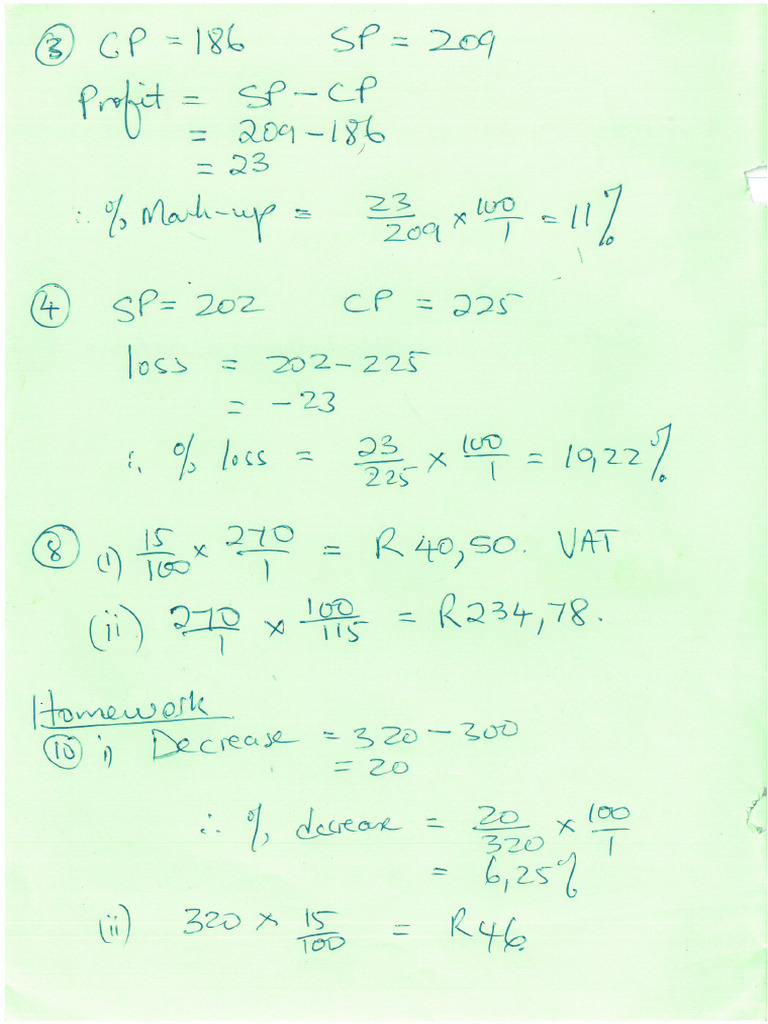 ③ CP = 186 SP = 209
Profit = SP – CP
= 209 – 186
= 23
∴ % Mark-up = 23/209 × 100/1 = 11%
④ SP = 202 CP = 225
loss = 202 – 225
= –23
∴ % loss = 23/225 × 100/1 = 10,22%
⑧ (i) 15/100 × 270/1 = R40,50. VAT
(ii) 270/1 × 100/115 = R234,78.
Homework
⑩ i) Decrease = 320 – 300
= 20
∴ % decrease = 20/320 × 100/1
= 6,25%
(ii) 320 × 15/100 = R46